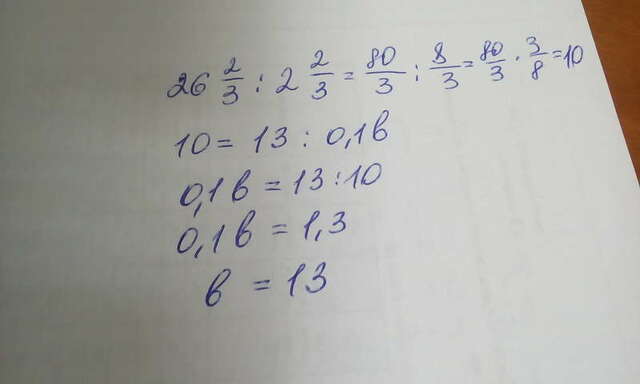 26 2/3 : 2 2/3 = 80/3 : 8/3 = 80/3 · 3/8 = 10
10 = 13 : 0,1в
0,1в = 13 : 10
0,1в = 1,3
в = 13